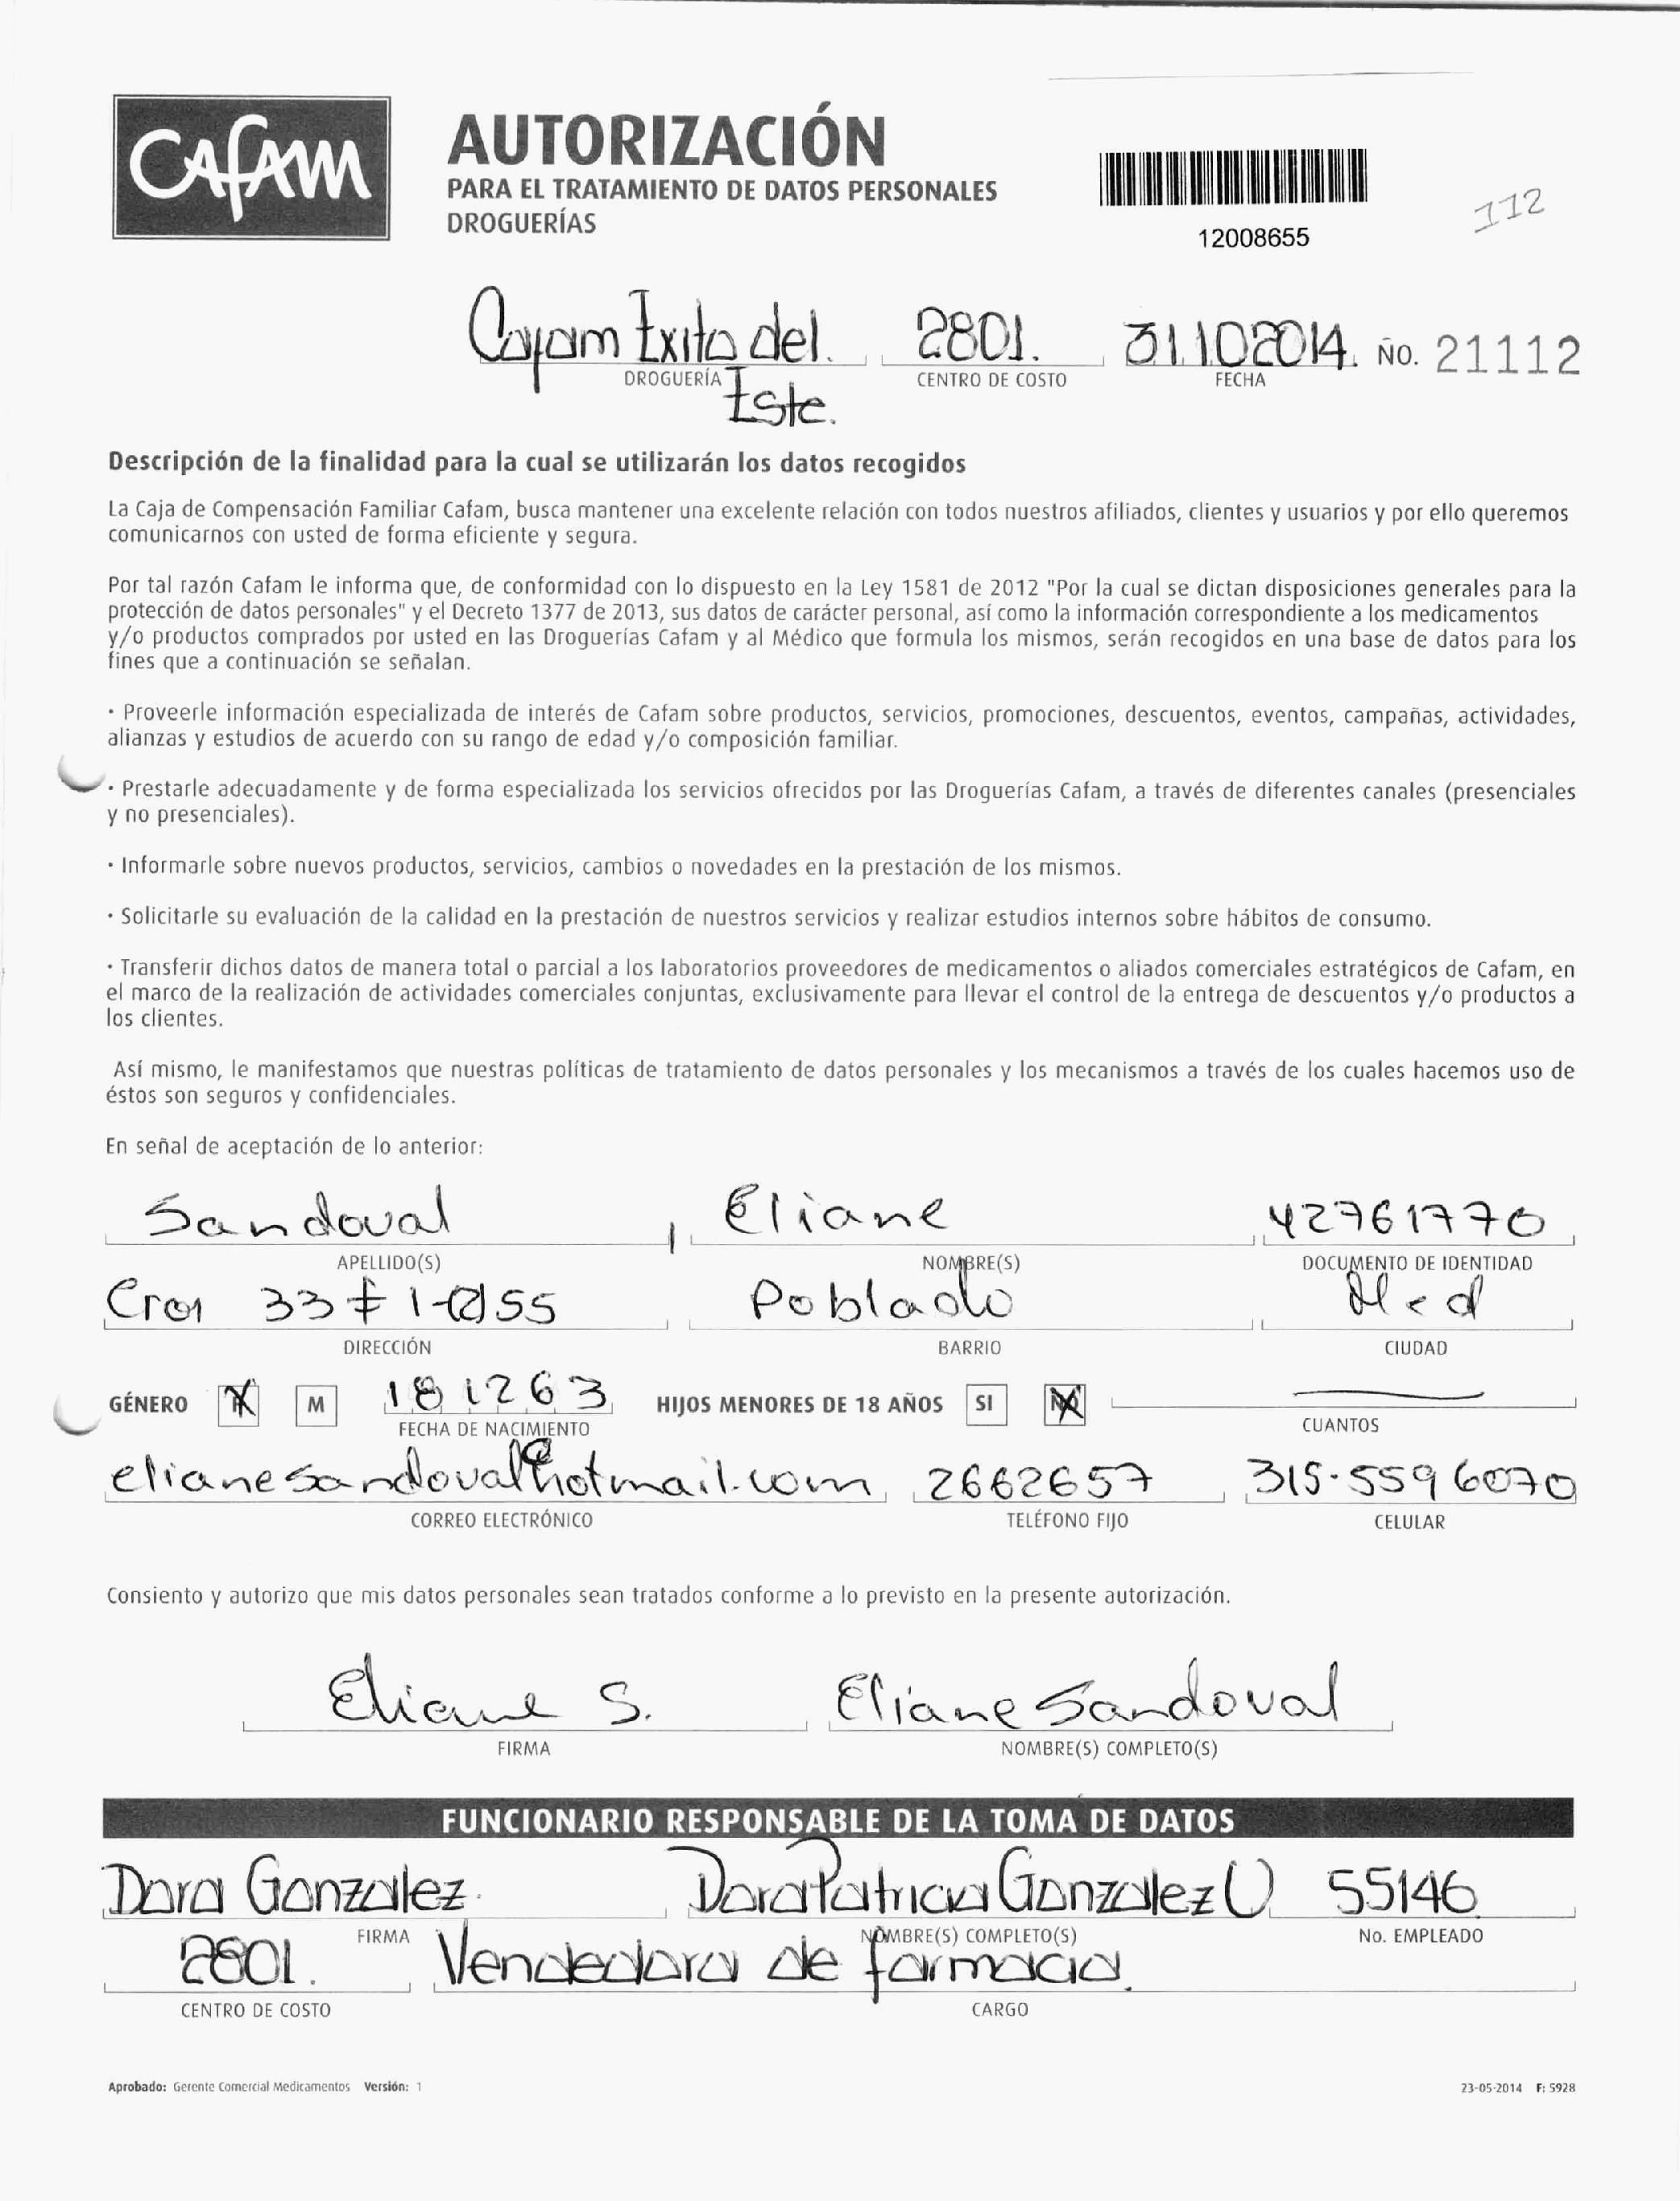 CAFAM
AUTORIZACIÓN
PARA EL TRATAMIENTO DE DATOS PERSONALES
DROGUERÍAS
12008655
112
Cafam Exito del 2801. 31102014. NO. 21112
DROGUERÍA CENTRO DE COSTO FECHA
Este.
Descripción de la finalidad para la cual se utilizarán los datos recogidos
La Caja de Compensación Familiar Cafam, busca mantener una excelente relación con todos nuestros afiliados, clientes y usuarios y por ello queremos
comunicarnos con usted de forma eficiente y segura.
Por tal razón Cafam le informa que, de conformidad con lo dispuesto en la Ley 1581 de 2012 "Por la cual se dictan disposiciones generales para la
protección de datos personales" y el Decreto 1377 de 2013, sus datos de carácter personal, así como la información correspondiente a los medicamentos
y/o productos comprados por usted en las Droguerías Cafam y al Médico que formula los mismos, serán recogidos en una base de datos para los
fines que a continuación se señalan.
· Proveerle información especializada de interés de Cafam sobre productos, servicios, promociones, descuentos, eventos, campañas, actividades,
alianzas y estudios de acuerdo con su rango de edad y/o composición familiar.
· Prestarle adecuadamente y de forma especializada los servicios ofrecidos por las Droguerías Cafam, a través de diferentes canales (presenciales
y no presenciales).
· Informarle sobre nuevos productos, servicios, cambios o novedades en la prestación de los mismos.
· Solicitarle su evaluación de la calidad en la prestación de nuestros servicios y realizar estudios internos sobre hábitos de consumo.
· Transferir dichos datos de manera total o parcial a los laboratorios proveedores de medicamentos o aliados comerciales estratégicos de Cafam, en
el marco de la realización de actividades comerciales conjuntas, exclusivamente para llevar el control de la entrega de descuentos y/o productos a
los clientes.
Así mismo, le manifestamos que nuestras políticas de tratamiento de datos personales y los mecanismos a través de los cuales hacemos uso de
éstos son seguros y confidenciales.
En señal de aceptación de lo anterior:
Sandoval Eliane 42761770
APELLIDO(S) NOMBRE(S) DOCUMENTO DE IDENTIDAD
Cra 33 # 1-155 Poblado Med
DIRECCIÓN BARRIO CIUDAD
GÉNERO M 181263 HIJOS MENORES DE 18 AÑOS SI
FECHA DE NACIMIENTO CUANTOS
elianesandoval@hotmail.com 2662657 315-5596070
CORREO ELECTRÓNICO TELÉFONO FIJO CELULAR
Consiento y autorizo que mis datos personales sean tratados conforme a lo previsto en la presente autorización.
Eliane S. Eliane Sandoval
FIRMA NOMBRE(S) COMPLETO(S)
FUNCIONARIO RESPONSABLE DE LA TOMA DE DATOS
Dora Gonzalez. Dora Patricia Gonzalez U 55146
FIRMA NOMBRE(S) COMPLETO(S) No. EMPLEADO
2801. Vendedora de farmacia.
CENTRO DE COSTO CARGO
Aprobado: Gerente Comercial Medicamentos Versión: 1 23-05-2014 F: 5928